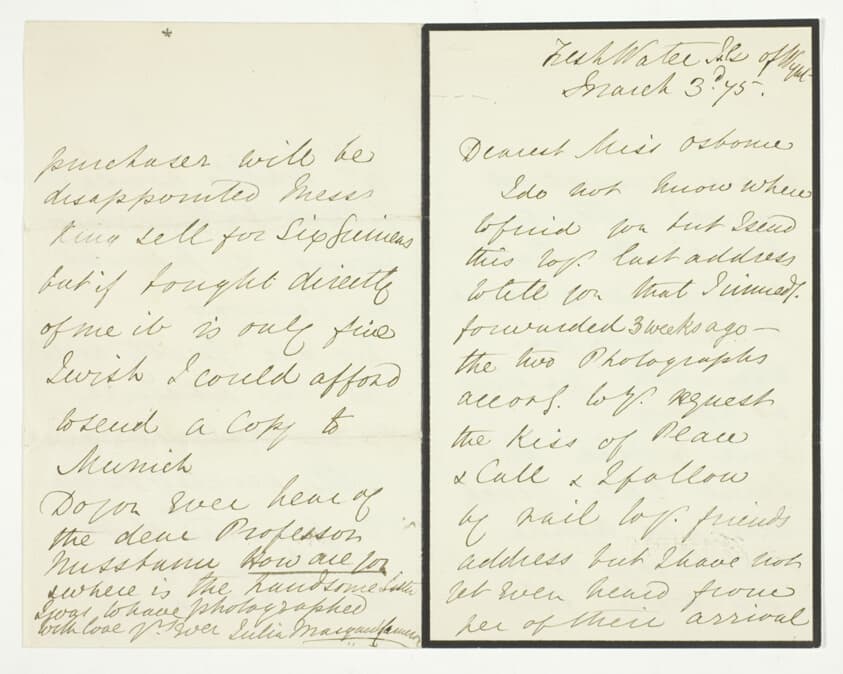 Fresh Water Isle of Wight
March 3d 75.
Dearest Miss Osborne
I do not know where
to find you but I send
this to yr. last address
to tell you that I immedy.
forwarded 3 weeks ago —
the two Photographs
accorg. to yr. request
the Kiss of Peace
& Call & I follow
by rail to yr. friends
address but I have not
yet even heard from
her of their arrival
*
purchaser will be
disappointed Messr
King sell for Six Guineas
but if bought directly
of me it is only five
I wish I could afford
to send a Copy to
Munich
Do you Ever hear of
the dear Professor
Nussbaum How are you
& where is the handsome Sister
I was to have photographed
with love yr. Ever Julia Margaret Cameron